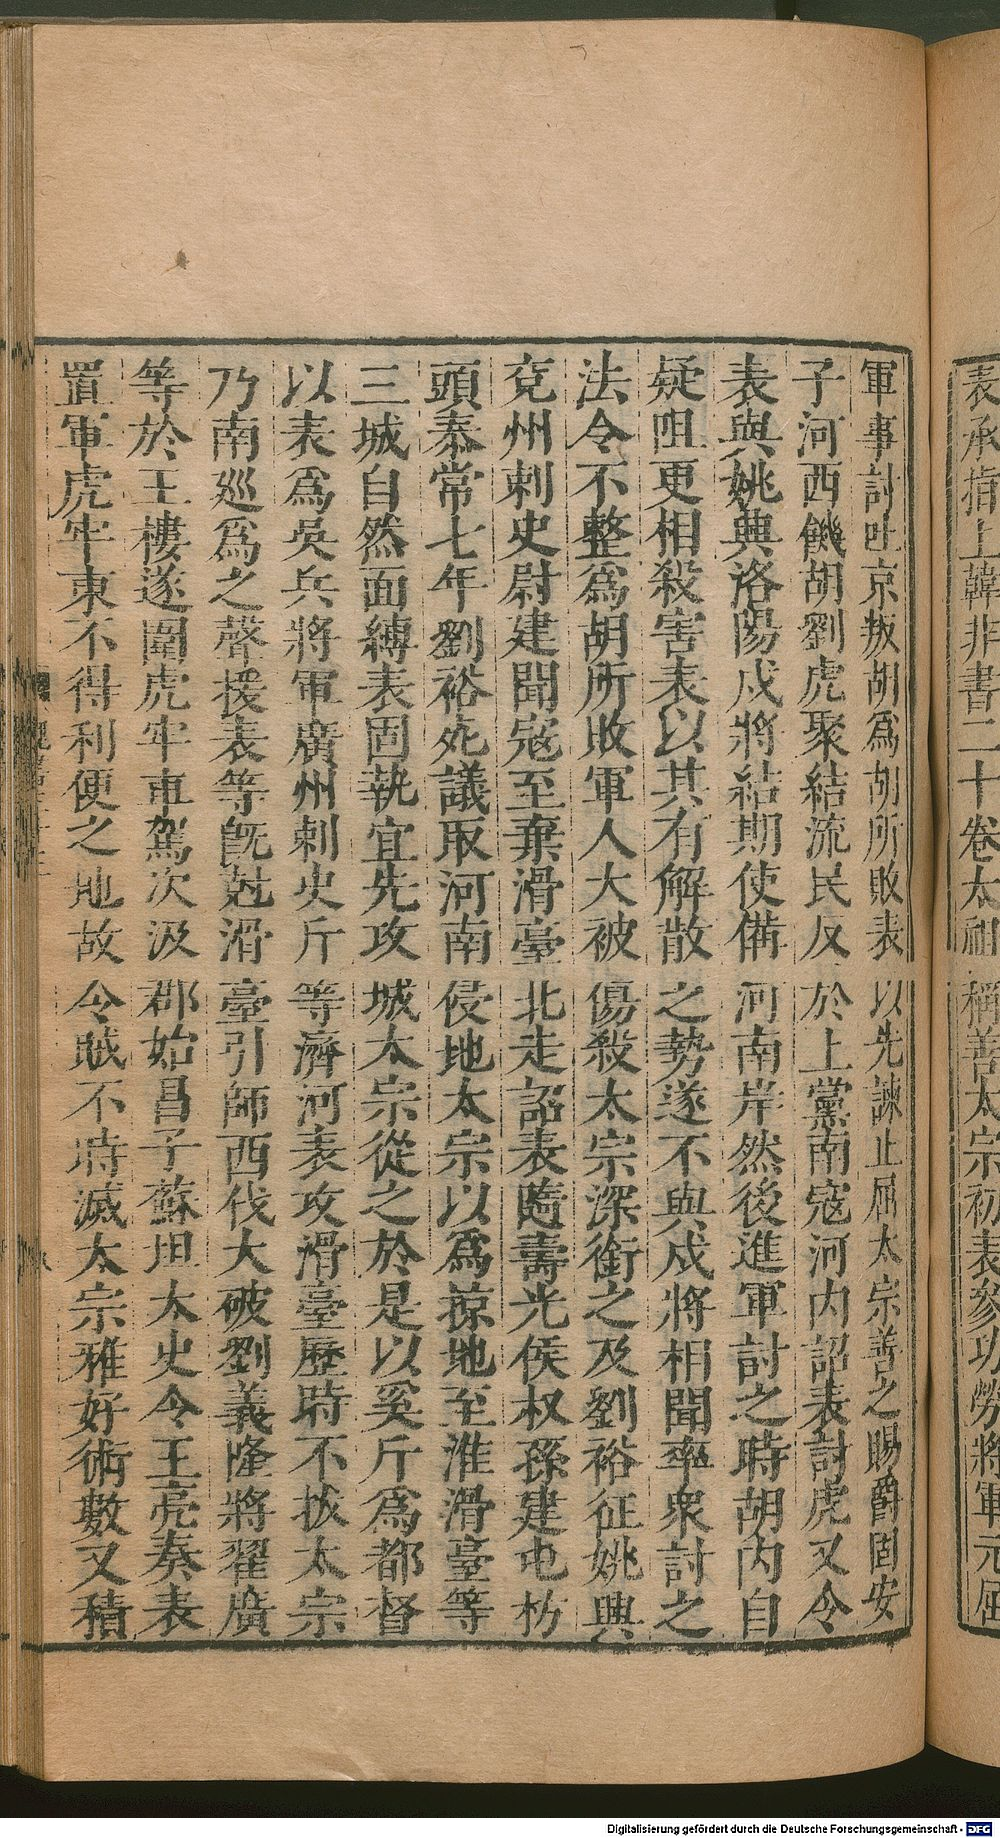 表承指上韓非書二十卷太祖稱善太宗初表參功勞將軍元屈
軍事討吐京叛胡爲胡所敗表以先諫止屈太宗善之賜爵固安
子河西饑胡劉虎聚結流民反於上黨南寇河內詔表討虎又令
表與姚興洛陽戍將結期使備河南岸然後進軍討之時胡內自
疑阻更相殺害表以其有解散之勢遂不與戍將相聞率衆討之
法令不整爲胡所敗軍人大被傷殺太宗深銜之及劉裕征姚興
兗州刺史尉建聞寇至棄滑臺北走詔表隨壽光侯权孫建屯枋
頭泰常七年劉裕死議取河南侵地太宗以爲掠地至淮滑臺等
三城自然面縛表固執宜先攻城太宗從之於是以奚斤爲都督
以表爲吳兵將軍廣州刺史斤等濟河表攻滑臺歷時不拔太宗
乃南巡爲之聲援表等旣剋滑臺引師西伐大破劉義隆將翟廣
等於土樓遂圍虎牢車駕次汲郡始昌子蘇坦太史令王亮奏表
置軍虎牢東不得利便之地故令賊不時滅太宗雅好術數又積